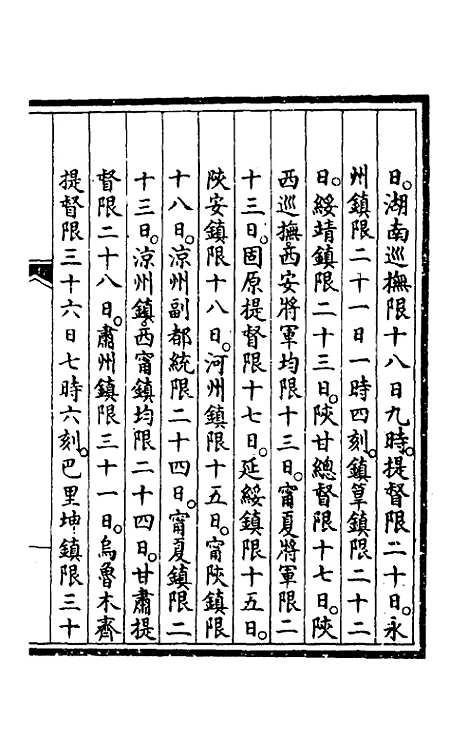 日。湖南巡撫限十八日九時。提督限二十日。永
州鎮限二十一日一時四刻。鎮筸鎮限二十二
日。綏靖鎮限二十三日。陜甘總督限十七日。陜
西巡撫。西安將軍均限十三日。甯夏將軍限二
十三日。固原提督限十七日。延綏鎮限十五日。
陜安鎮限十八日。河州鎮限十五日。甯陜鎮限
十八日。涼州副都統限二十四日。甯夏鎮限二
十三日。涼州鎮。西甯鎮均限二十四日。甘肅提
督限二十八日。肅州鎮限三十一日。烏魯木齊
提督限三十六日七時六刻。巴里坤鎮限三十